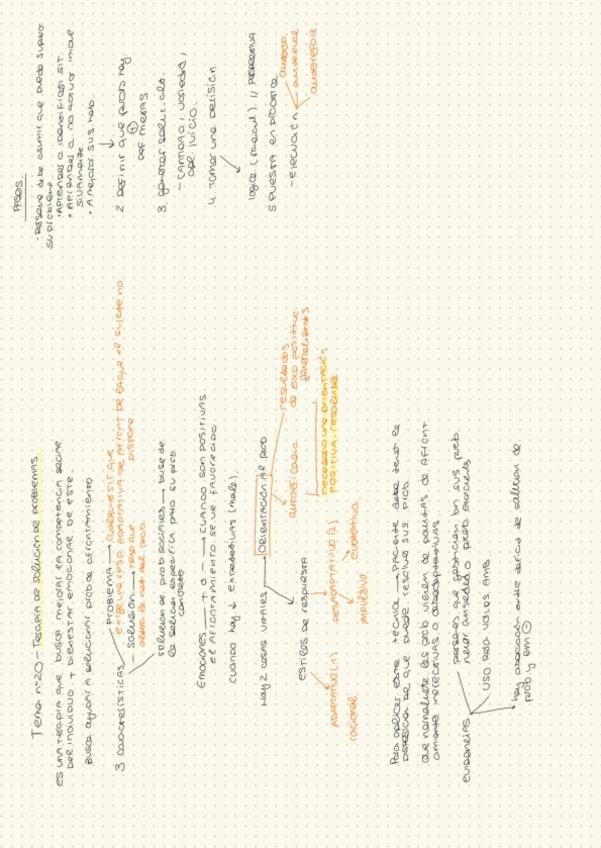 Tema nº20 - Terapia de solución de problemas.
es una terapia que busca mejorar la competencia social
del individuo + bienestar emocional de este.
Busca ayudar a solucionar prob de afrontamiento
3 características
PROBLEMA → cualquier sit que
exige una resp. adaptativa de afront de la que el sujeto no
dispone
- solución → resp que
altera la nat del prob.
solución de prob sociales → busc de
la solución específica para su prob
concreto
Emociones → + o - → cuando son positivas
el afrontamiento se ve favorecido
cuando hay ↓ expectativas (malo)
Hay 2 cosas vitales
ORIENTACIÓN AL prob
resultados
de exp positiva
generalizados
autoeficacia
necesario una orientación
positiva, resoluble
estilos de respuesta
ADAPTATIVO (1)
racional
DESADAPTATIVO (2)
impulsivo
evitativo
Para aplicar esta técnica → paciente debe tener la
de que puede resolver sus prob.
que normalmente las prob vienen de pautas de afront
amiento inefectivas o desadaptativas.
evidencias
personas que gestionan bn sus prob
menor ansiedad o prob sociales
USO para varios amb
hay asociación entre déficit de solución de
prob y em ⊖
PASOS
- Persona debe asumir que puede superar
su problema
• Aprender a identificar sit.
• Aprender a no actuar impul
sivamente
• A mejorar sus hab
2 Definir que prob hay
⊕
DEF metas
3. generar soluc. alt.
- cantidad, variedad,
apl. juicio.
4. Tomar una decisión
logica (racional) //
5 Puesta en práctica
- ejecución
autoobs
autoeval
autorrefue